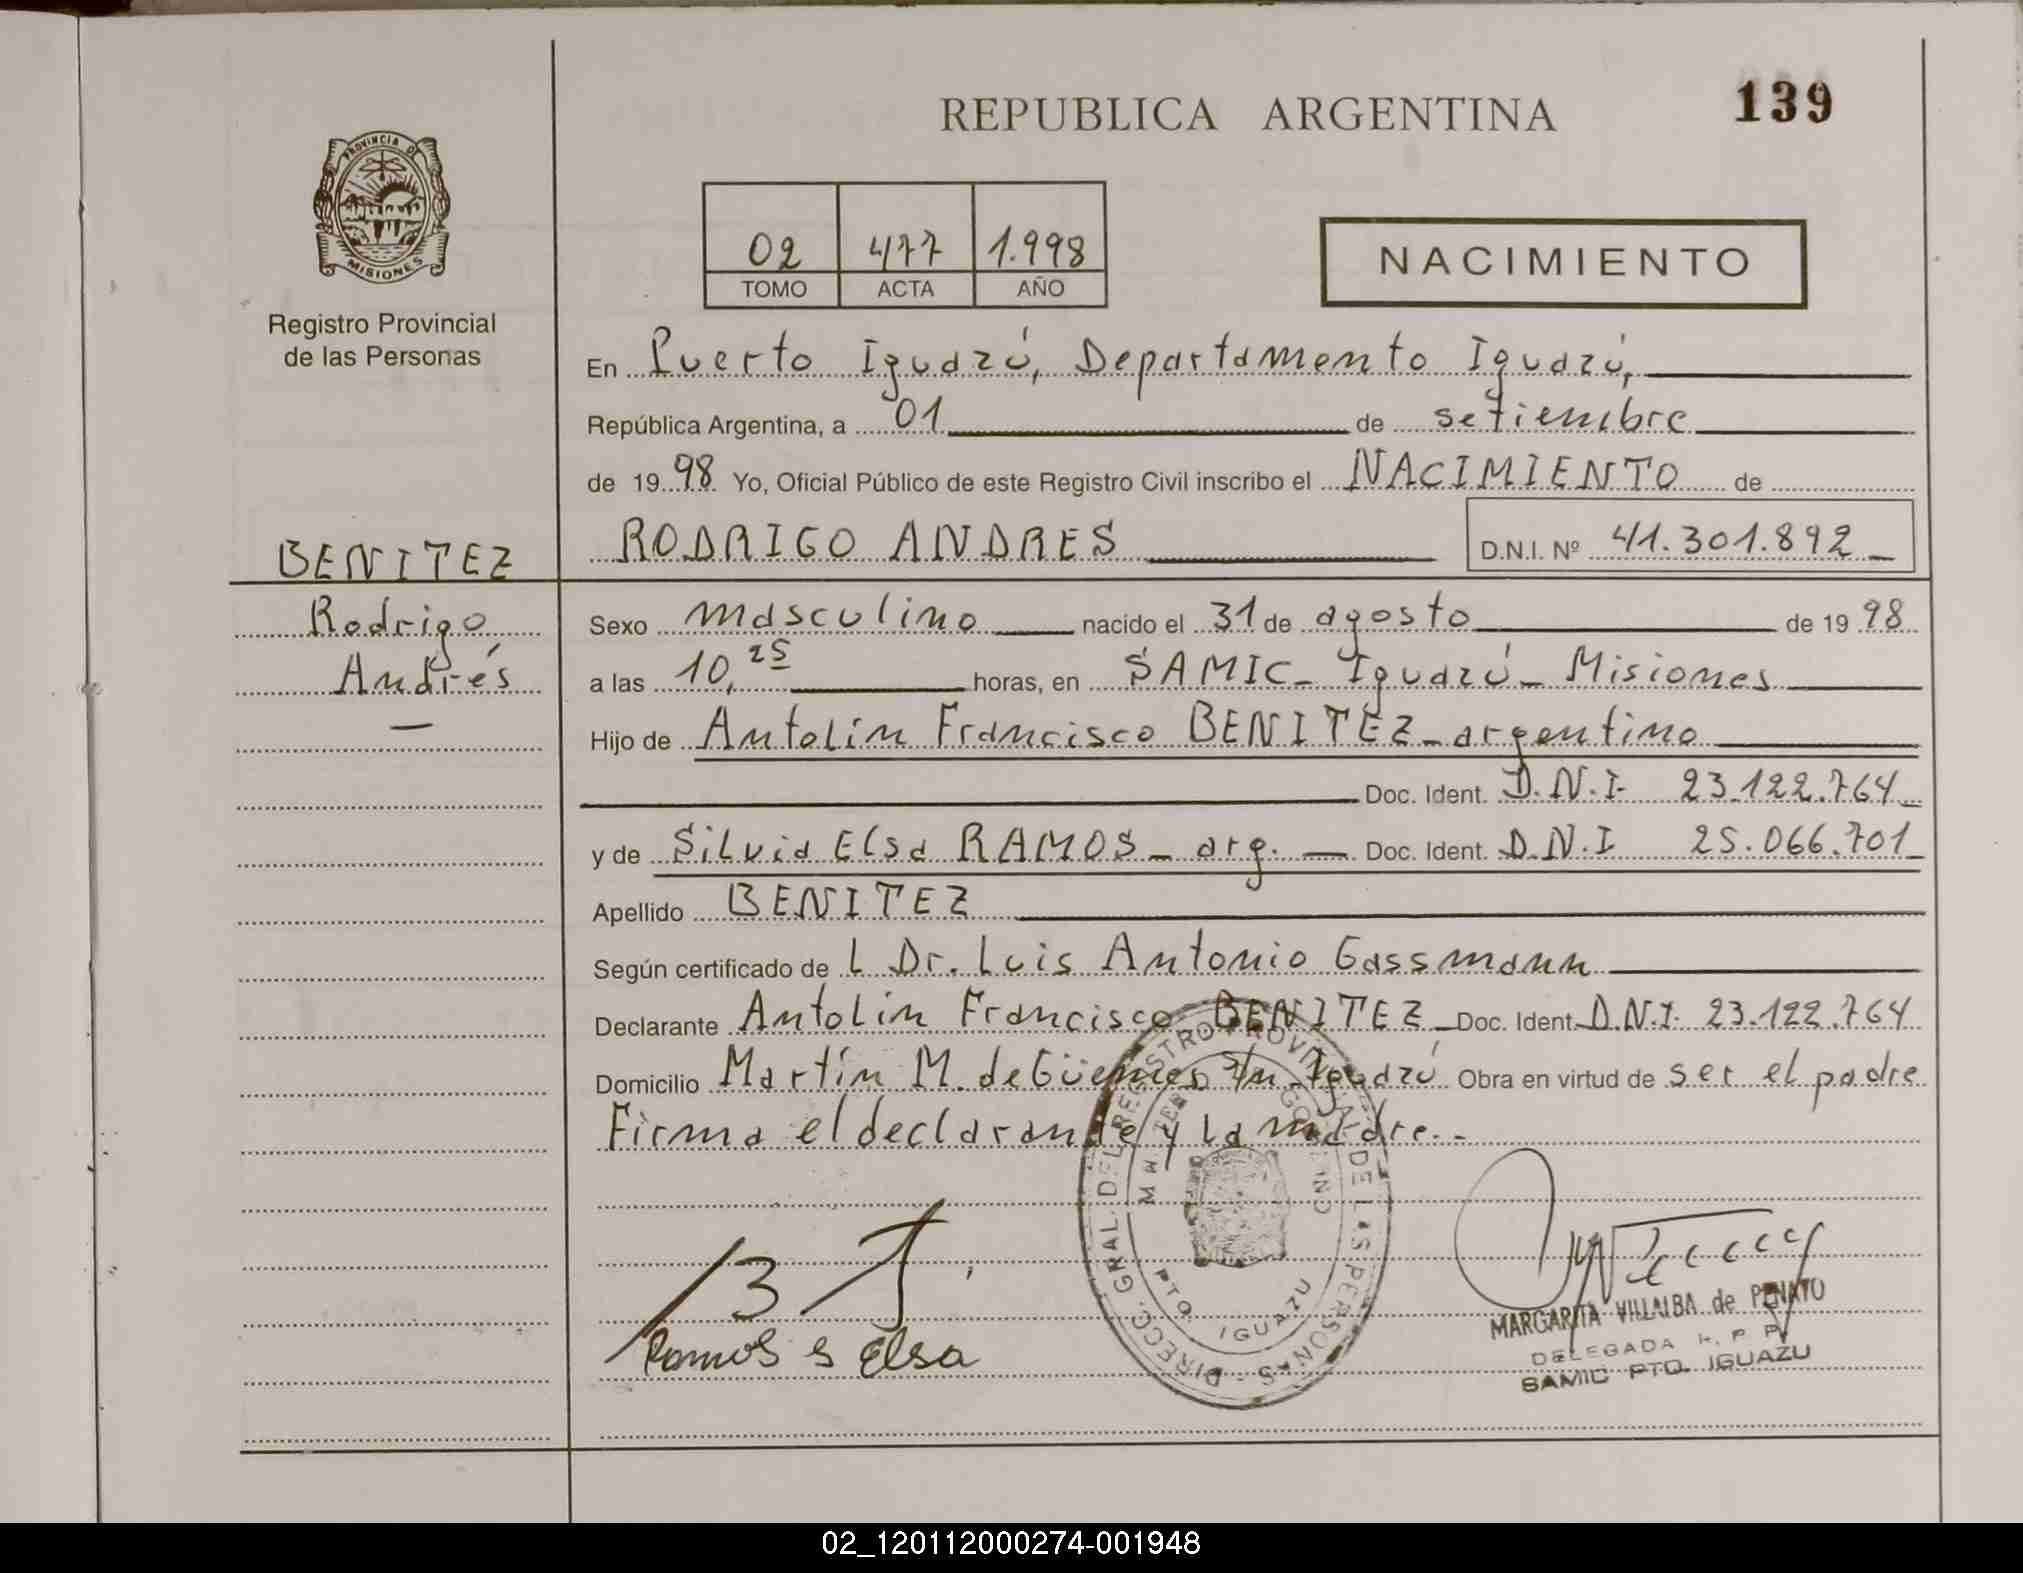 REPUBLICA ARGENTINA
139
PROVINCIA DE
MISIONES
Registro Provincial
de las Personas
02 477 1.998
TOMO ACTA AÑO
NACIMIENTO
En Puerto Iguazú, Departamento Iguazú,
República Argentina, a 01 de setiembre
de 1998 Yo, Oficial Público de este Registro Civil inscribo el NACIMIENTO de
RODRIGO ANDRES D.N.I. Nº 41.301.892
BENITEZ
Rodrigo
Andrés
Sexo masculino nacido el 31 de agosto de 1998
a las 10,25 horas, en SAMIC - Iguazú - Misiones
Hijo de Antolín Francisco BENITEZ - argentino
Doc. Ident. D.N.I. 23.122.764
y de Silvia Elsa RAMOS - arg. - Doc. Ident. D.N.I 25.066.701
Apellido BENITEZ
Según certificado de L Dr. Luis Antonio Gassmann
Declarante Antolín Francisco BENITEZ - Doc. Ident. D.N.I. 23.122.764
Domicilio Martín M. de Güemes s/n - Iguazú Obra en virtud de ser el padre
Firma el declarante y la madre.-
DIRECC. GRAL. DEL REGISTRO PROVINCIAL DE LAS PERSONAS
PTO. IGUAZU
Ramos S Elsa
MARGARITA VILLALBA de PENAYO
DELEGADA R. P. P.
SAMIC PTO. IGUAZU
02_120112000274-001948